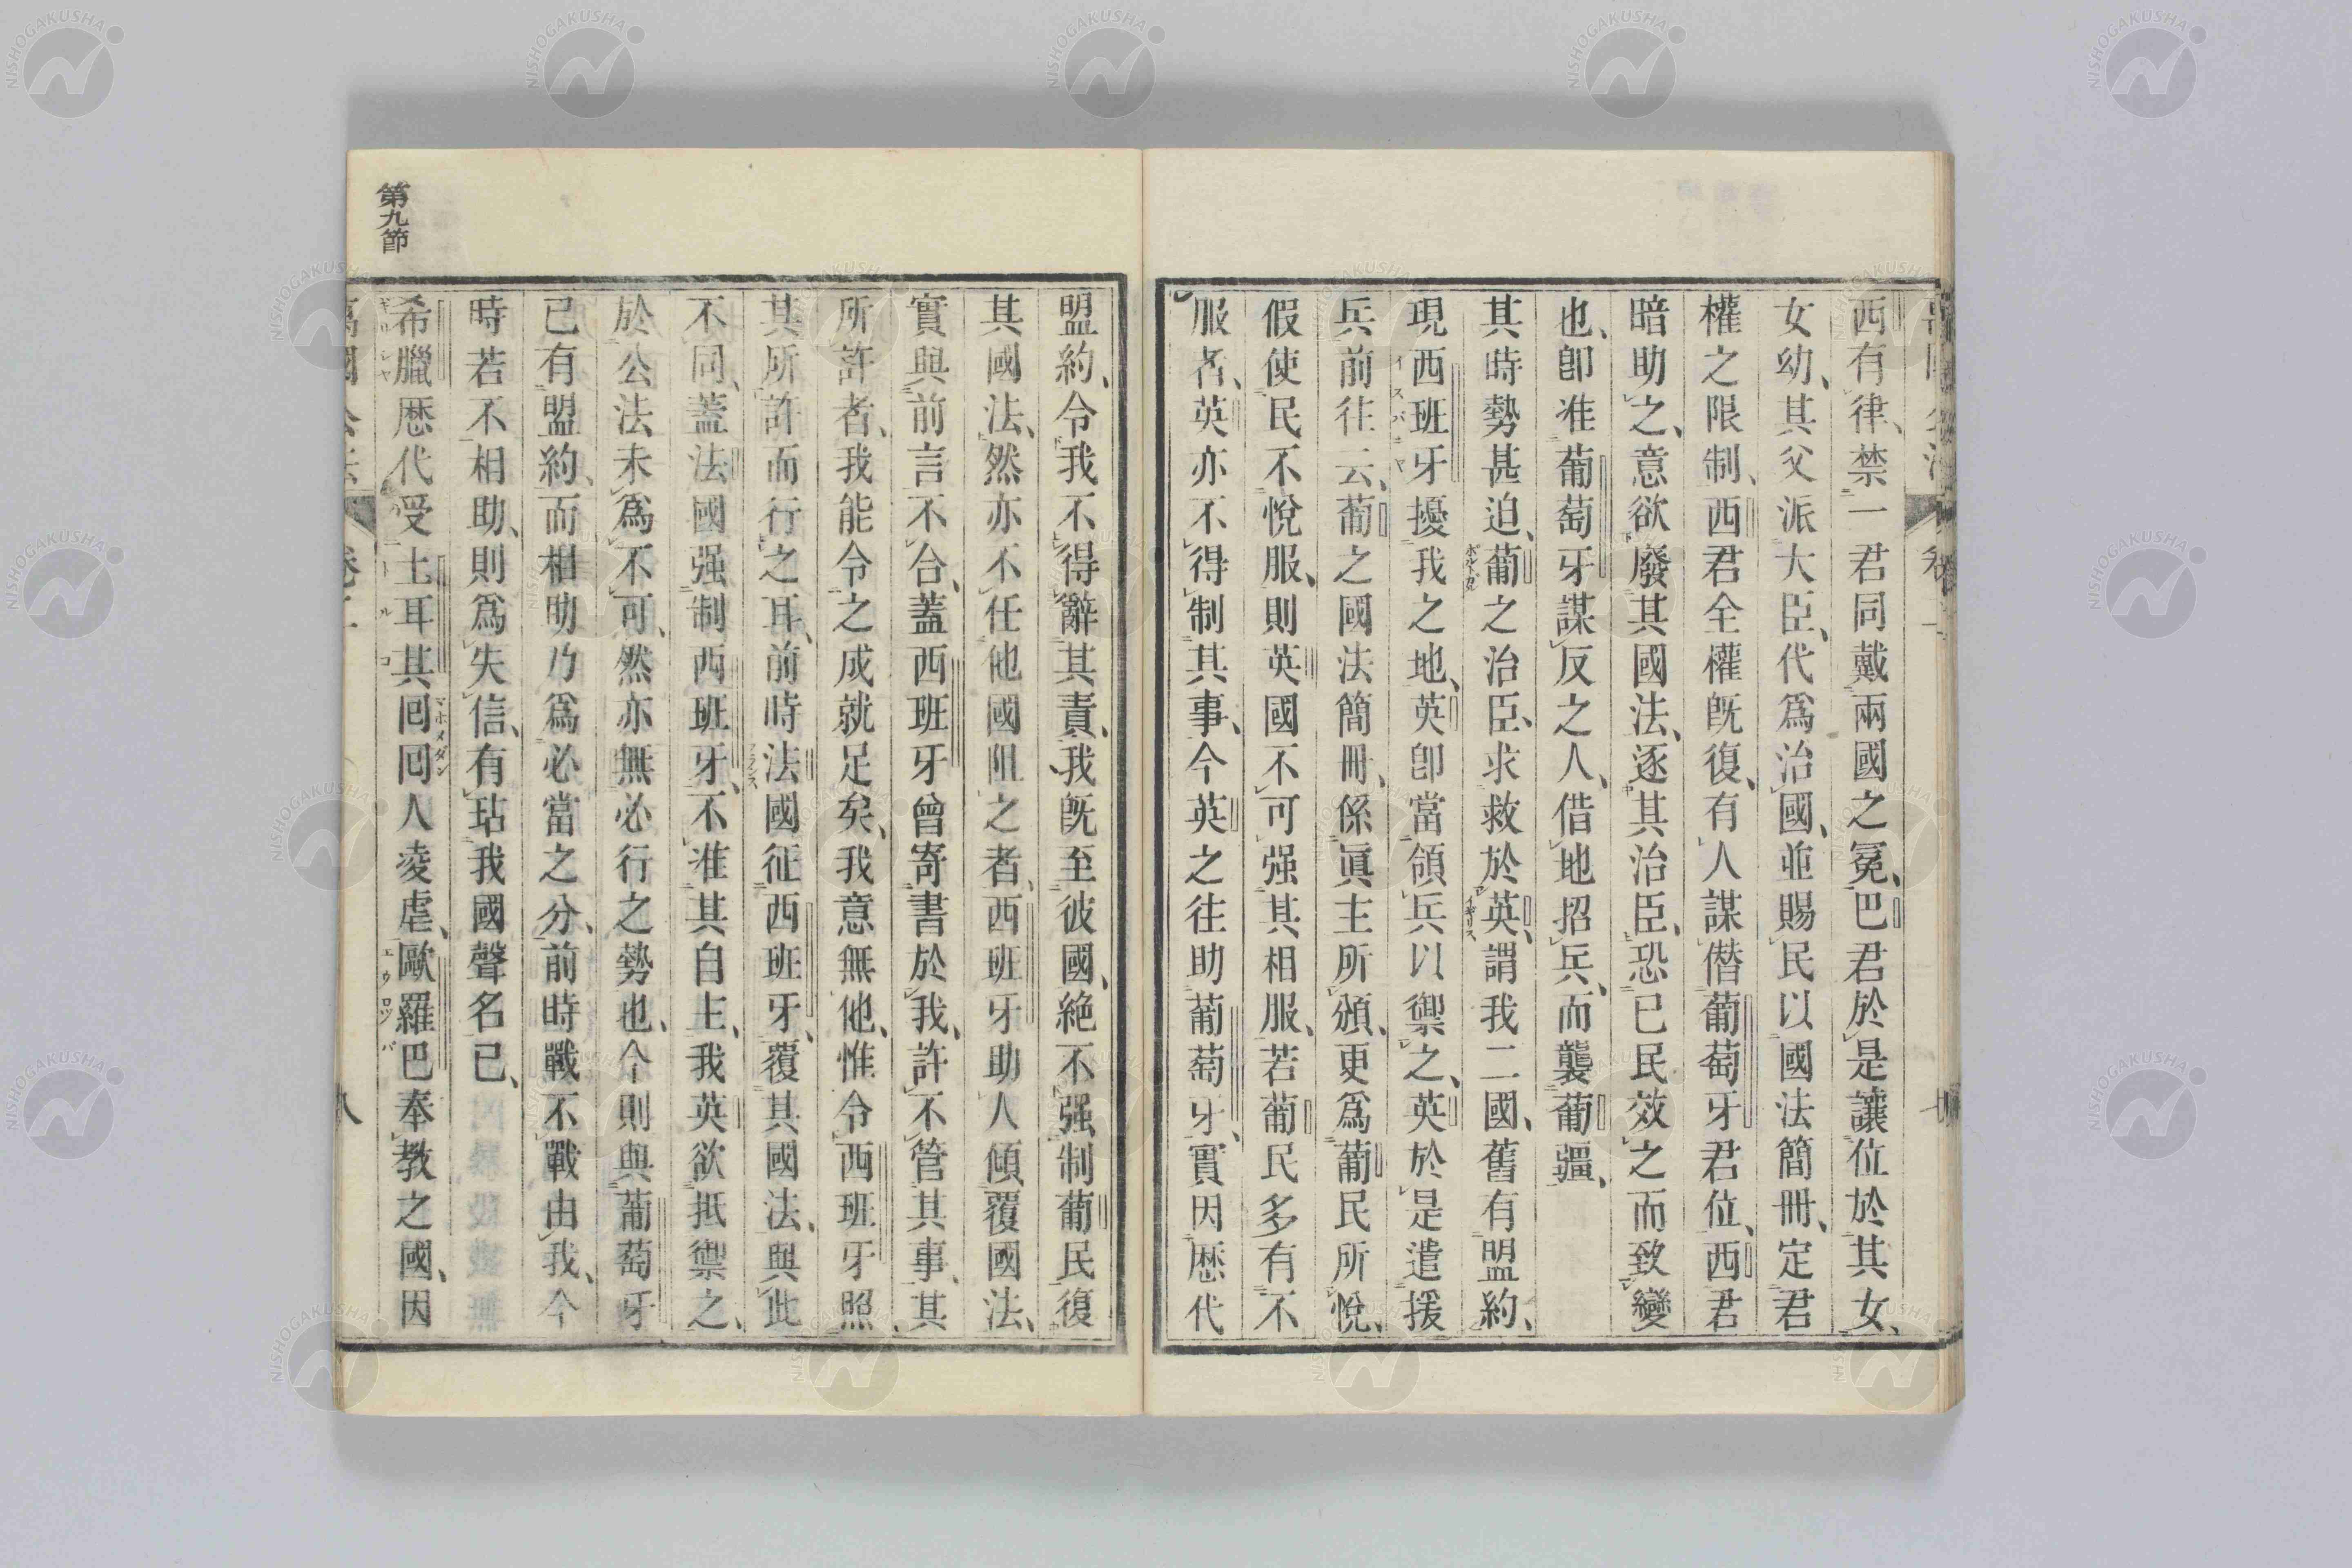 西有律、禁一君同戴兩國之冕、巴君於是讓位於其女、
女幼、其父派大臣、代爲治國、並賜民以國法簡冊、定君
權之限制、西君全權既復、有人謀僭葡萄牙君位、西君
暗助之、意欲廢其國法、逐其治臣、恐已民效之而致變
也、卽准葡萄牙謀反之人、借地招兵、而襲葡疆、
其時勢甚迫、葡之治臣、求救於英、謂我二國、舊有盟約、
現西班牙擾我之地、英卽當領兵以禦之、英於是遣援
兵前往云、葡之國法簡冊、係眞主所頒、更爲葡民所悅、
假使民不悅服、則英國不可强其相服、若葡民多有不
服者、英亦不得制其事、今英之往助葡萄牙、實因歷代
盟約、令我不得辭其責、我既至彼國、絶不强制葡民復
其國法、然亦不任他國阻之者、西班牙助人傾覆國法、
實與前言不合、蓋西班牙曾寄書於我、許不管其事、其
所許者、我能令之成就足矣、我意無他、惟令西班牙照
其所許而行之耳、前時法國征西班牙、覆其國法、與此
不同、蓋法國强制西班牙、不准其自主、我英欲抵禦之、
於公法未爲不可、然亦無必行之勢也、今則與葡萄牙
已有盟約、而相助乃爲必當之分、前時戰不戰由我、今
時若不相助、則爲失信、有玷我國聲名已、
第九節
希臘歷代受土耳其回回人凌虐、歐羅巴奉教之國、因
萬國公法 卷二 八